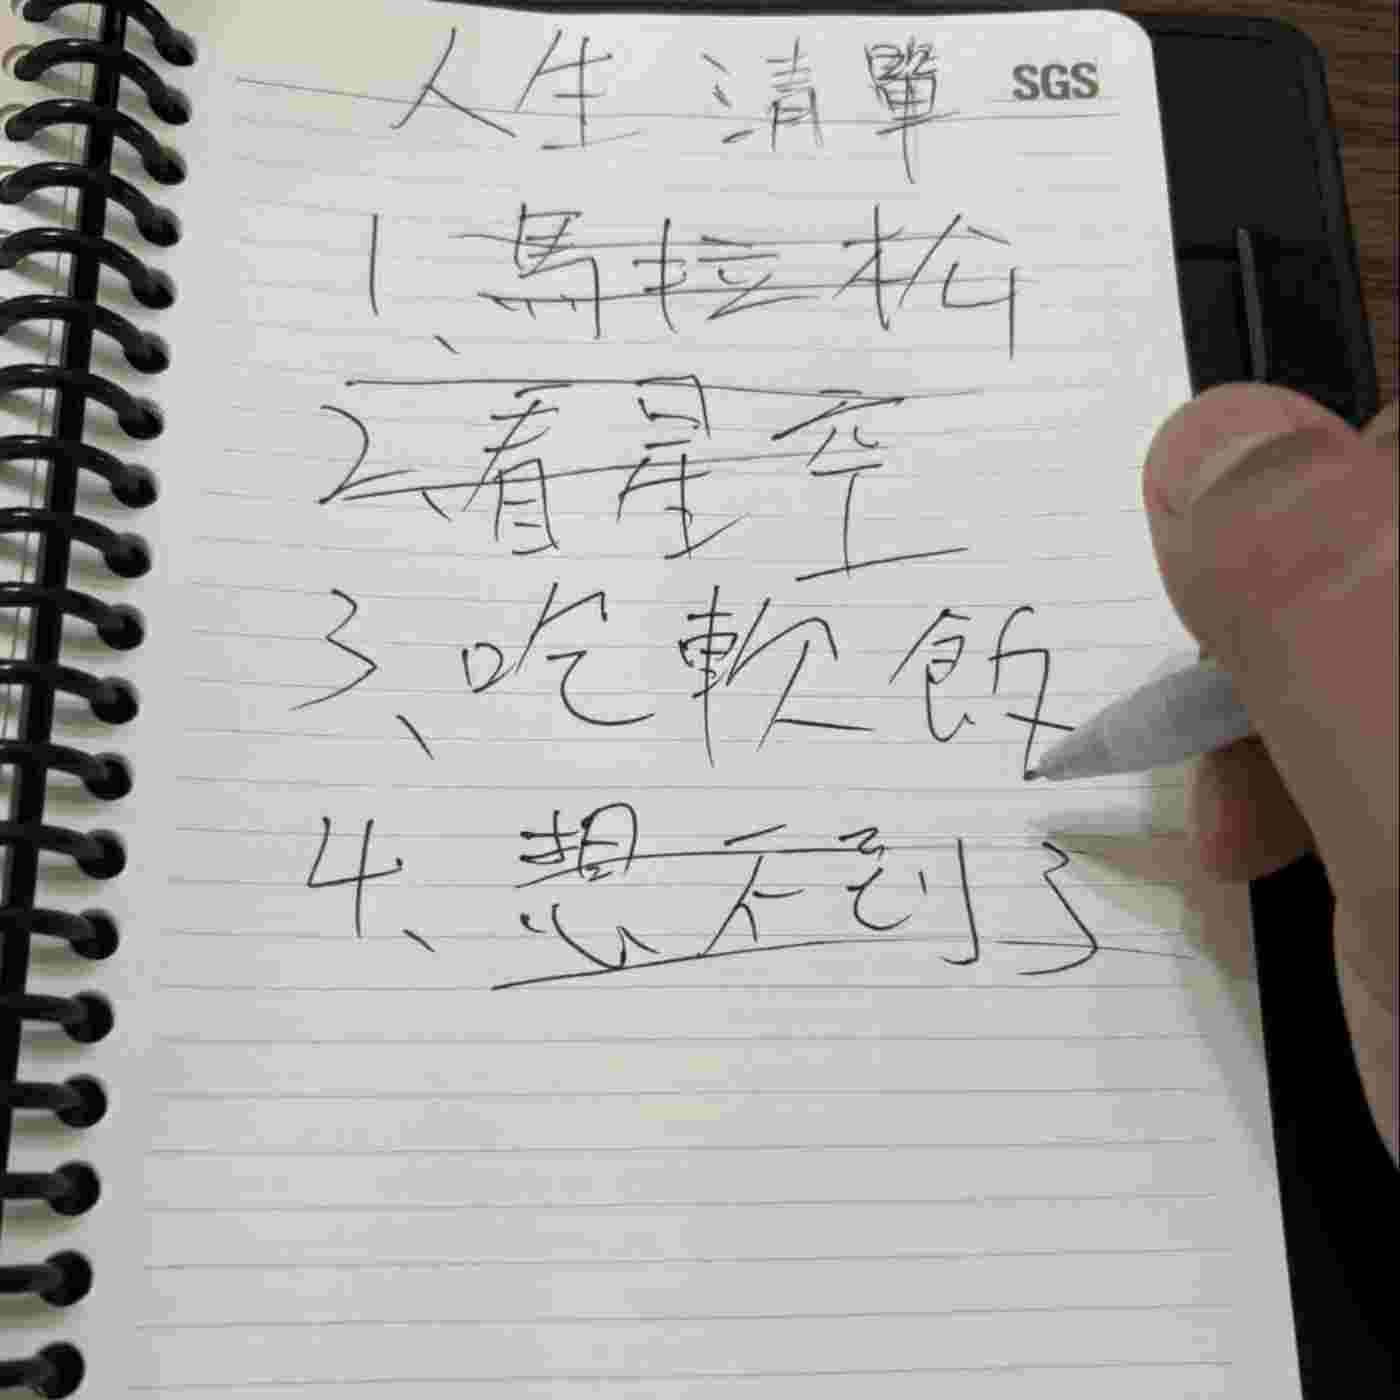 人生清單 SGS
1、馬拉松
2、看星空
3、吃軟飯
4、想不到了